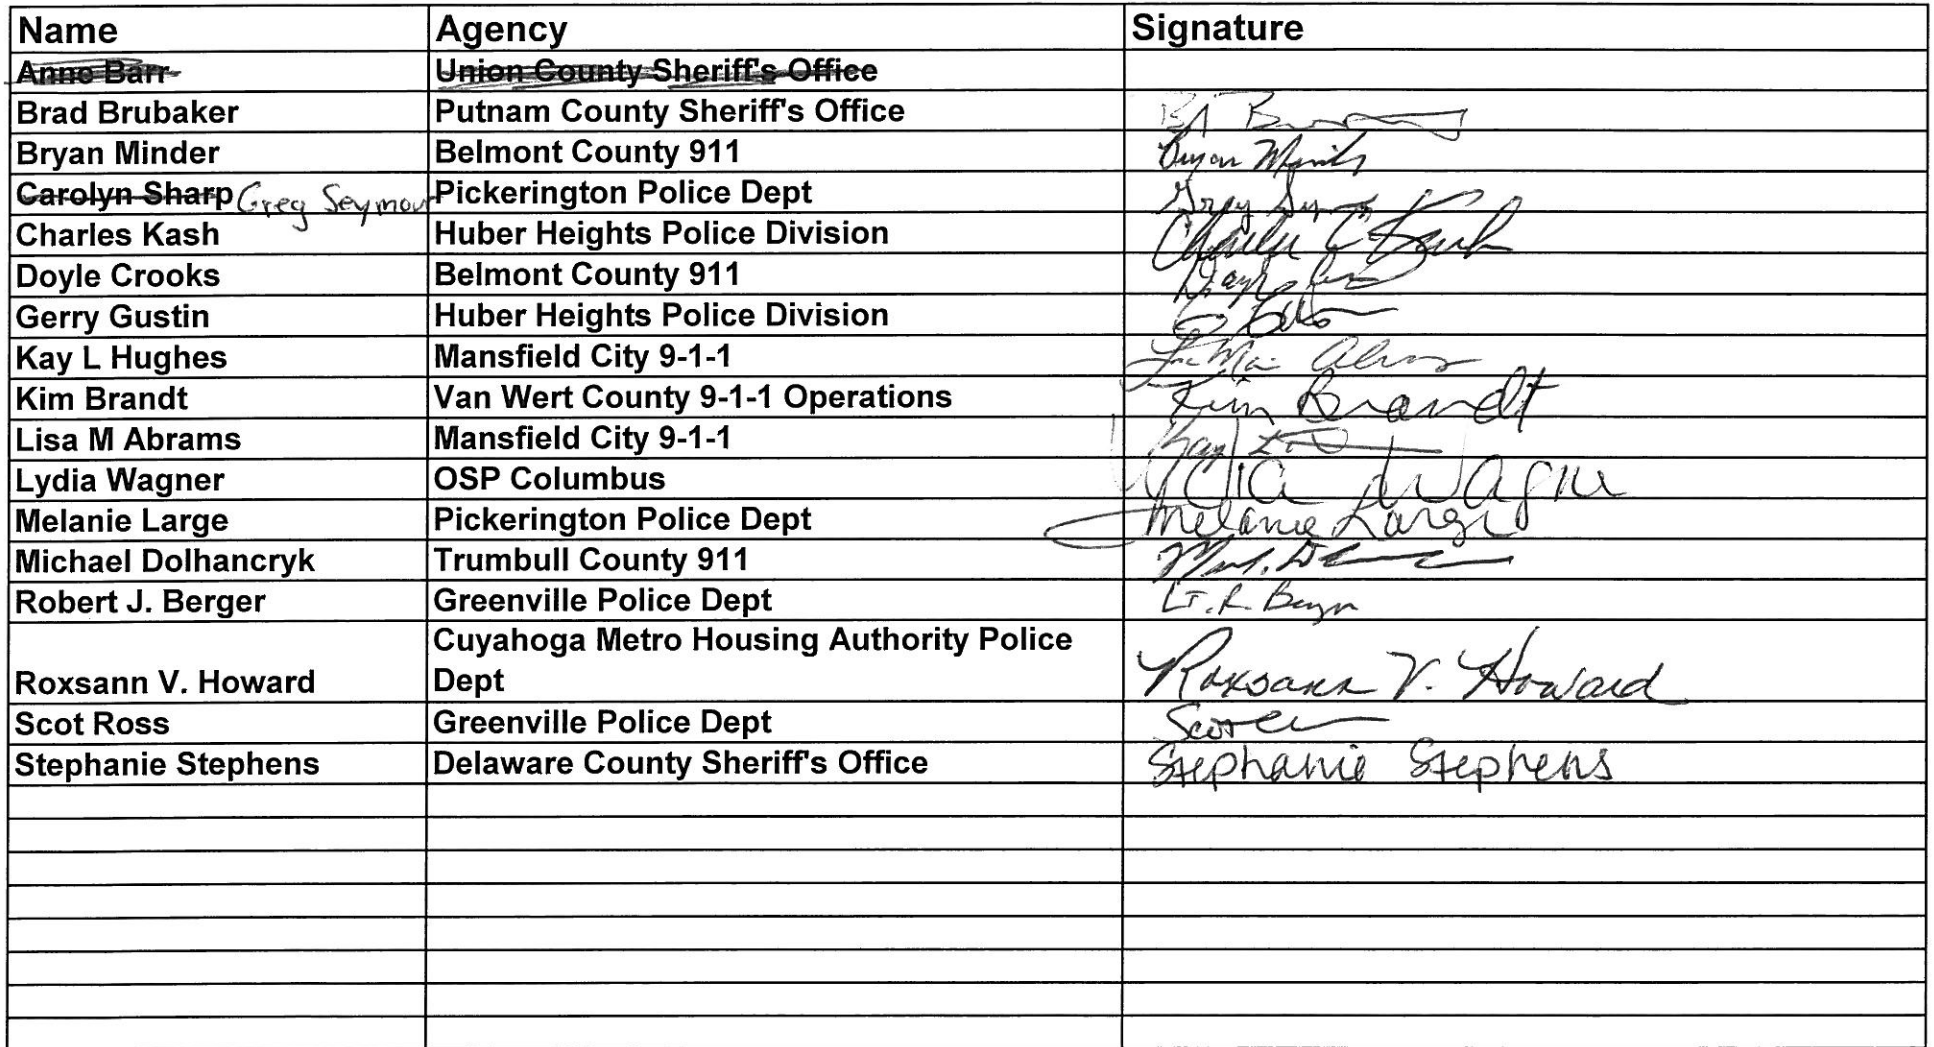 Name Agency Signature
Anne Barr Union County Sheriff's Office
Brad Brubaker Putnam County Sheriff's Office
Bryan Minder Belmont County 911 Bryan
Carolyn Sharp Greg Seymour Pickerington Police Dept Greg
Charles Kash Huber Heights Police Division Charles Kash
Doyle Crooks Belmont County 911
Gerry Gustin Huber Heights Police Division
Kay L Hughes Mansfield City 9-1-1
Kim Brandt Van Wert County 9-1-1 Operations Kim Brandt
Lisa M Abrams Mansfield City 9-1-1 Kay L
Lydia Wagner OSP Columbus Lydia Wagner
Melanie Large Pickerington Police Dept Melanie Large
Michael Dolhancryk Trumbull County 911
Robert J. Berger Greenville Police Dept Lt. R. Berger
Cuyahoga Metro Housing Authority Police
Roxsann V. Howard Dept Roxsann V. Howard
Scot Ross Greenville Police Dept Scot
Stephanie Stephens Delaware County Sheriff's Office Stephanie Stephens